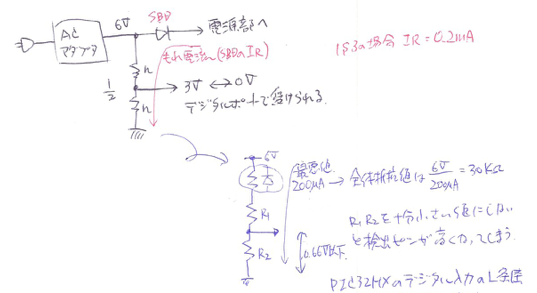 AC
アダプタ
6V
SBD
電源部へ
1S3の場合 IR = 0.2mA
もれ電流 (SBDのIR)
1/2
3V ↔ 0V
デジタルポートで受けられる
6V
最悪値
200μA → 全体抵抗値は 6V/200μA = 30KΩ
R1
R2
0.66V以下
R1 R2を十分小さい値にしない
と検出ピンが高くなってしまう
PIC32MXのデジタル入力のL条件